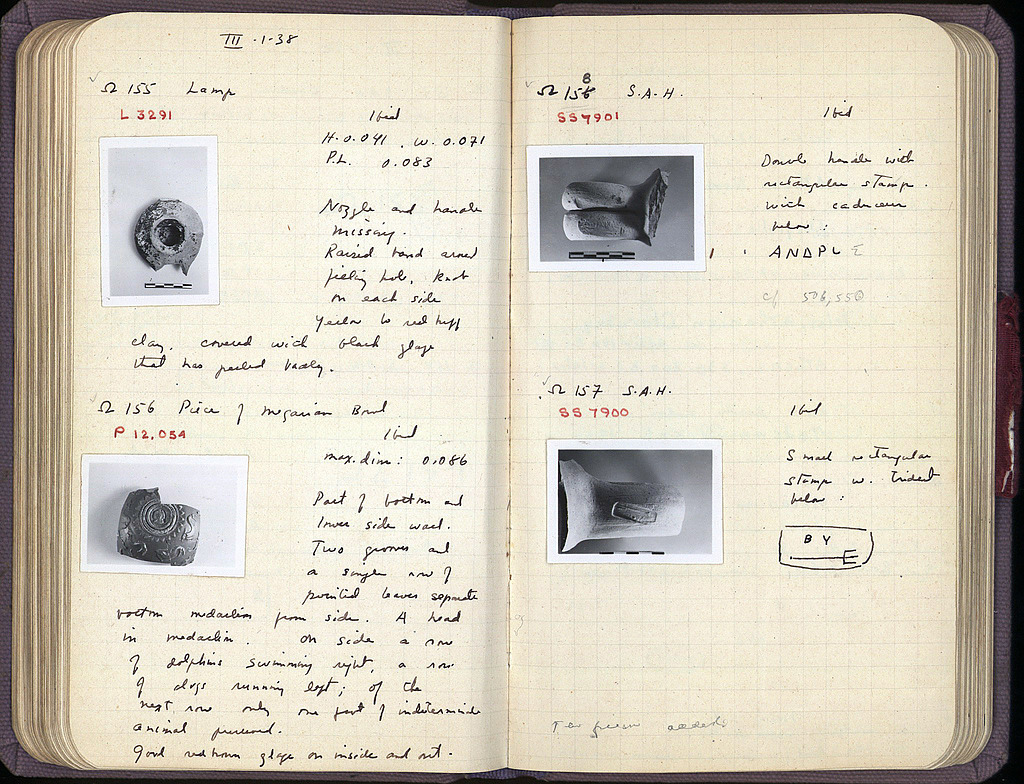 III · 1-38
Ω 155 Lamp
L 3291
Ibid
H. 0.041 . W. 0.071
P.L. 0.083
Nozzle and handle
missing.
Raised band around
filling hole, knob
on each side
Yellow to red buff
clay, covered with black glaze
that has peeled badly.
Ω 156 Piece of Megarian Bowl
P 12,054
Ibid
max. dim: 0.086
Part of bottom and
lower side wall.
Two grooves and
a single row of
pointed leaves separate
bottom medallion from side. A head
in medallion. On side a row
of dolphins swimming right, a row
of dogs running left; of the
next row only one part of indeterminate
animal preserved.
Good red brown glaze on inside and out.
Ω 156 B S.A.H.
SS 7901
Ibid
Double handle with
rectangular stamp.
with caduceus
below:
ΑΝΔΡ Ε
cf 506, 550
Ω 157 S.A.H.
SS 7900
Ibid
Small rectangular
stamp w. trident
below:
B Y
added